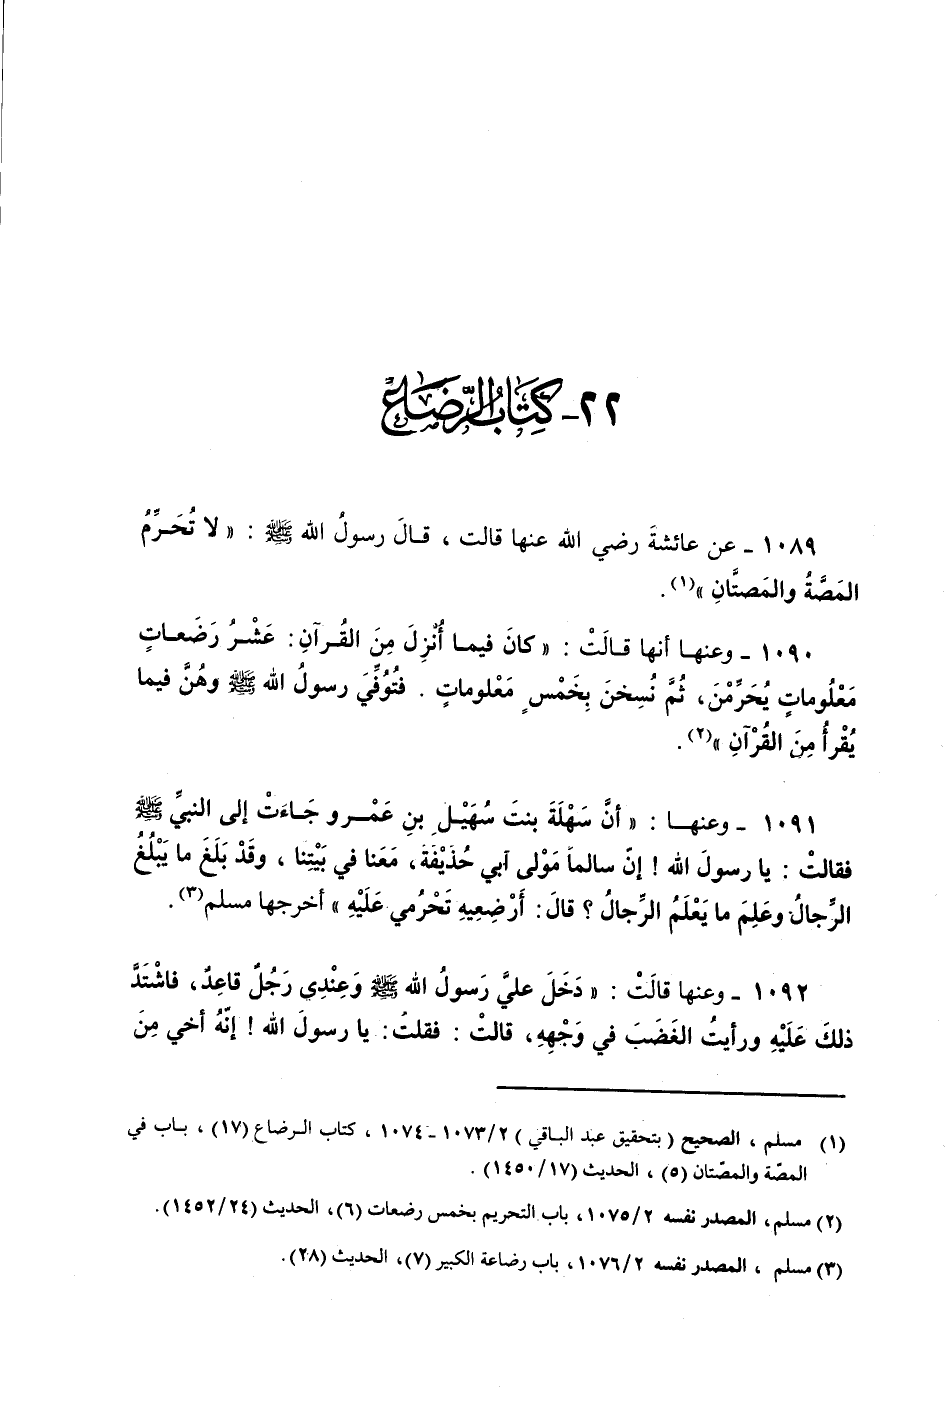 ٢٢ - كِتَابُ الرَّضَاعْ
١٠٨٩ ـ عن عائشةَ رضي الله عنها قالت ، قـالَ رسولُ الله ﷺ : « لا تُحَـرِّمُ
المَصَّةُ والمَصتَّانِ »(١) .
١٠٩٠ ـ وعنهـا أنها قـالَتْ : « كانَ فيمـا أُنْزِلَ مِنَ القُـرآنِ : عَشْـرُ رَضَعـاتٍ
مَعْلُوماتٍ يُحَرِّمْنَ، ثُمَّ نُسِخنَ بِخَمْسٍ مَعْلوماتٍ . فَتُوُفِّيَ رسولُ الله ﷺ وهُنَّ فيما
يُقْرأُ مِنَ القُرْآنِ »(٢) .
١٠٩١ ـ وعنهــا : « أنَّ سَهْلَةَ بنتَ سُهَيْـلِ بنِ عَمْـرو جَـاءَتْ إلى النبيِّ ﷺ
فقالتْ : يا رسولَ الله ! إنّ سالماً مَوْلى أبي حُذَيْفَةَ، مَعَنا في بَيْتِنا ، وقَدْ بَلَغَ ما يَبْلُغُ
الرِّجالُ وعَلِمَ ما يَعْلَمُ الرِّجالُ ؟ قالَ: أَرْضِعيهِ تَحْرُمي عَلَيْهِ » أخرجها مسلم(٣) .
١٠٩٢ ـ وعنها قالَتْ : « دَخَلَ عليَّ رَسولُ الله ﷺ وَعِنْدِى رَجُلٌ قاعِدٌ، فاشْتَدَّ
ذلكَ عَلَيْهِ ورأيتُ الغَضَبَ في وَجْهِهِ، قالتْ : فقلتُ: يا رسولَ الله ! إنّهُ أخي مِنَ
(١) مسلم ، الصحيح ( بتحقيق عبد البـاقي ) ١٠٧٣/٢ ـ ١٠٧٤ ، كتاب الـرضاع (١٧) ، بـاب في
المصّة والمصّتان (٥) ، الحديث (١٤٥٠/١٧) .
(٢) مسلم، المصدر نفسه ١٠٧٥/٢، باب التحريم بخمس رضعات (٦)، الحديث (١٤٥٢/٢٤).
(٣) مسلم ، المصدر نفسه ١٠٧٦/٢، باب رضاعة الكبير (٧)، الحديث (٢٨).